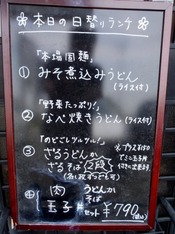 本日の日替りランチ
「本場固麺」
① みそ煮込みうどん
(ライス付)
「野菜たっぷり!」
② なべ焼きうどん(ライス付)
「のどごしツルツル!」
③ ざるうどんか
ざるそば 2段
④ 肉 うどんか
玉子 そば
セット ¥790